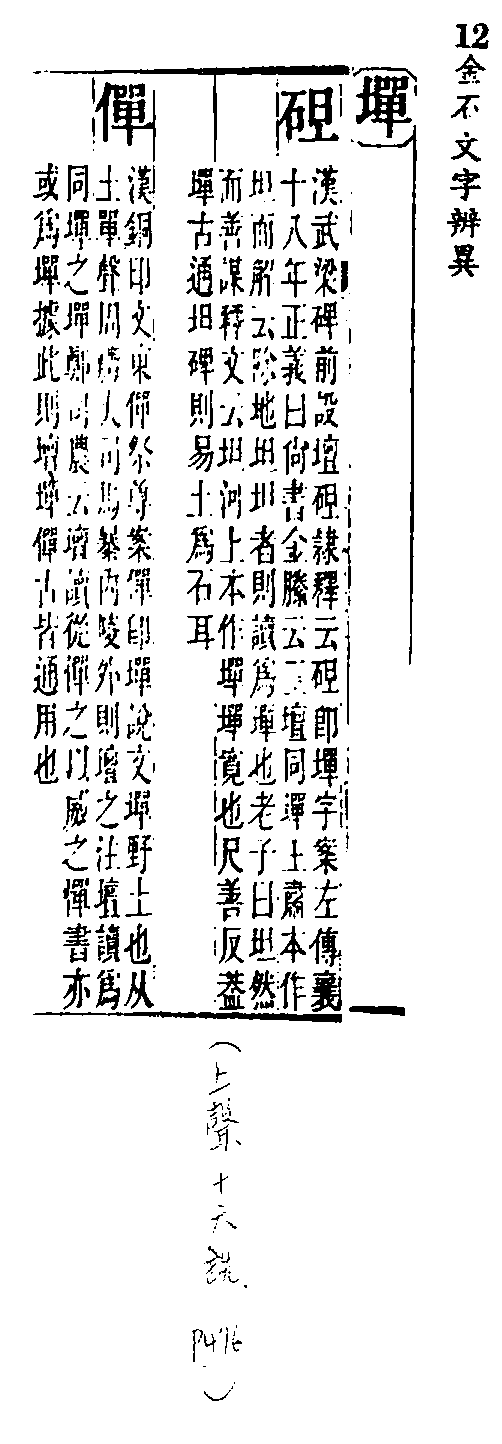 12金石文字辨異
墠
䃪
漢武梁碑前設壇䃪隸釋云䃪即墠字案左傳襄
十八年正義曰尚書金縢云三壇同墠王肅本作
坦而解云除地坦坦者則讀爲墠也老子曰坦然
而善謀釋文云坦河上本作墠墠寬也尺善反葢
墠古通坦碑則易土爲石耳
僤
漢銅印文東僤祭尊案僤印墠說文墠野土也从
土單聲周禮大司馬暴內陵外則壇之注壇讀爲
同墠之墠鄭司農云壇讀從憚之以威之憚書亦
或爲墠據此則壇墠僤古皆通用也
(上聲十六銑. P476)